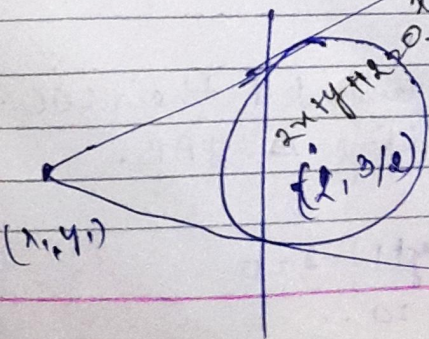 2x+y+2=0.
(2, 3/2)
(x₁, y₁)